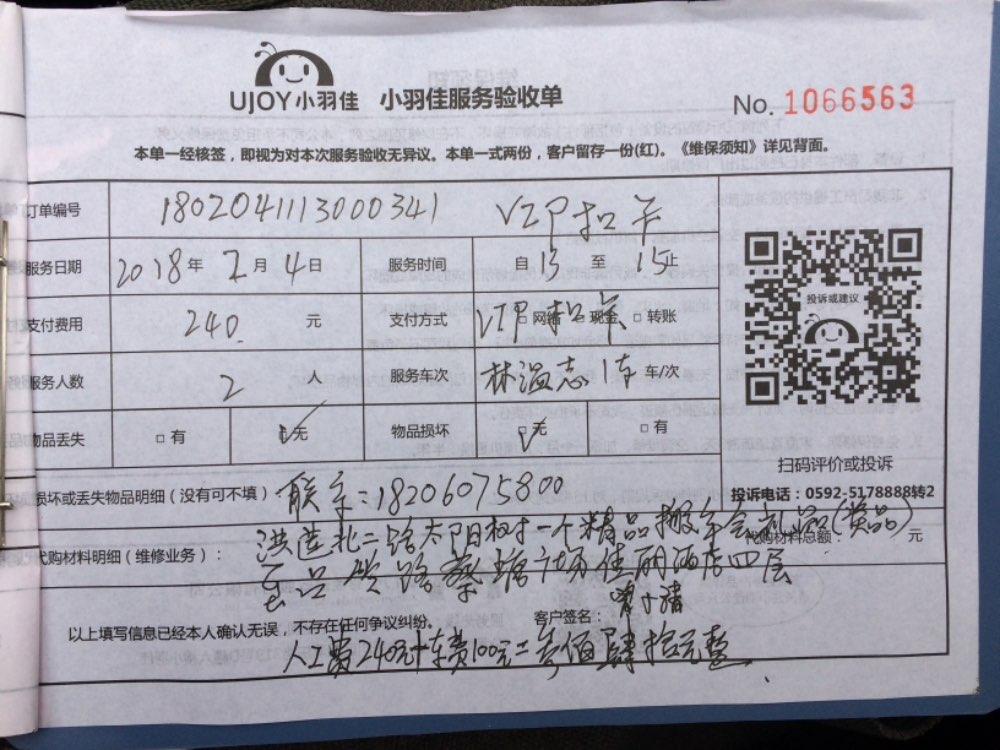 UJOY小羽佳 小羽佳服务验收单 No. 1066563
本单一经核签，即视为对本次服务验收无异议。本单一式两份，客户留存一份(红)。《维保须知》详见背面。
订单编号 1802041113000341 VIP扣卡
服务日期 2018年2月4日 服务时间 自13至15止
投诉或建议
支付费用 240.元 支付方式 VIP扣卡 □网络 □现金 □转账
服务人数 2人 服务车次 林温志 1车 车/次
物品丢失 □有 □无 物品损坏 □无 □有
扫码评价或投诉
损坏或丢失物品明细（没有可不填） 联系:18206075800 投诉电话：0592-5178888转2
洪莲北二路太阳 一个精品搬年会礼品(奖品)
代购材料明细（维修业务）： 代购材料总额： 元
路蔡塘 佳丽酒店四层
以上填写信息已经本人确认无误，不存在任何争议纠纷。 客户签名：
人工费240元+车费100元=叁佰肆拾元整